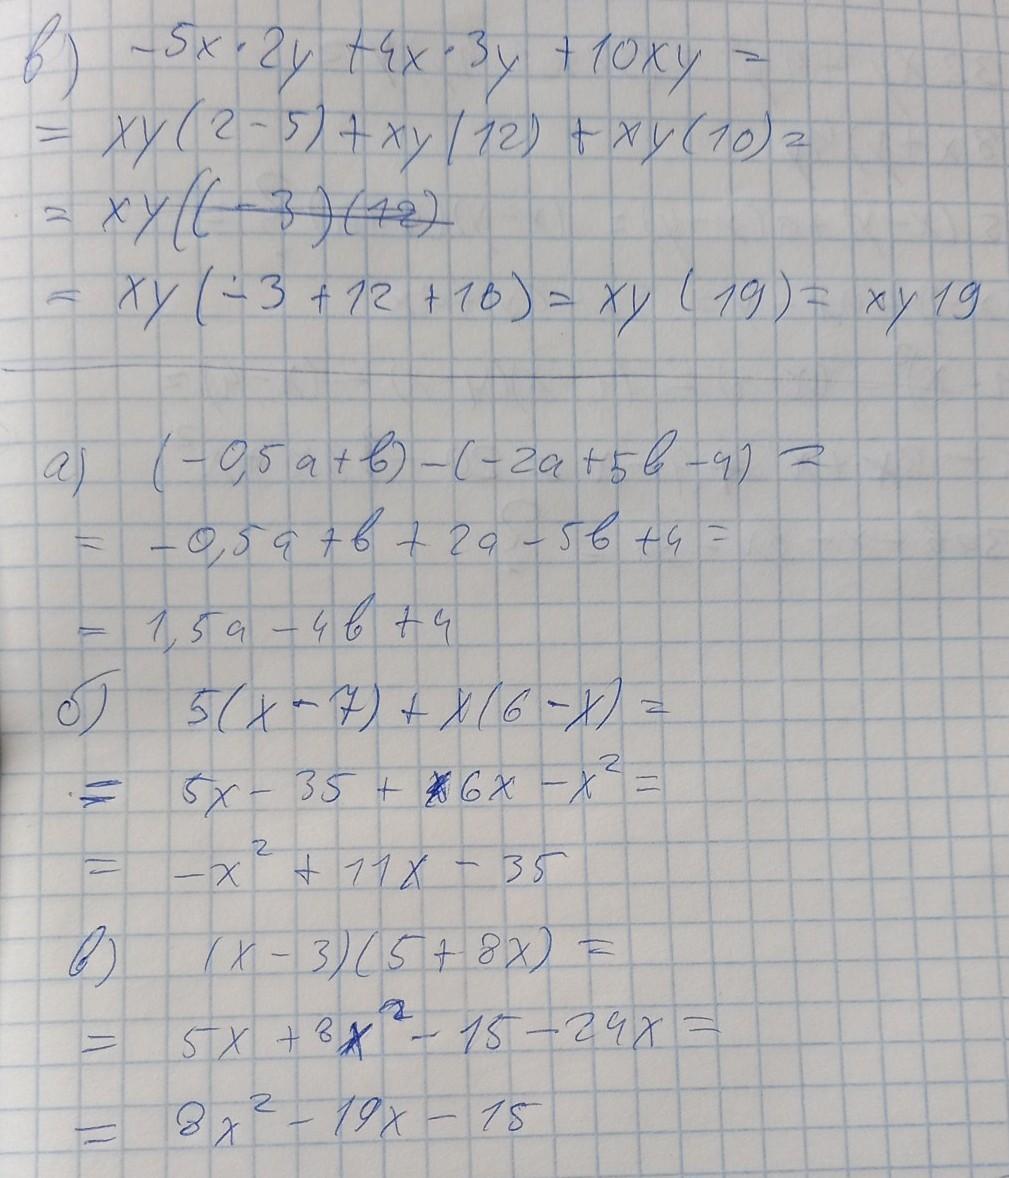 в) -5x·2y +4x·3y +10xy =
= xy(2-5)+xy(12)+xy(10)=
= xy((-3)(12)
= xy(-3+12+10)= xy(19)= xy19
а) (-0,5a+b)-(-2a+5b-4) =
= -0,5a+b+2a-5b+4=
= 1,5a-4b+4
б) 5(x-7)+x(6-x)=
= 5x-35+6x-x²=
= -x²+11x-35
в) (x-3)(5+8x)=
= 5x+8x²-15-24x=
= 8x²-19x-15